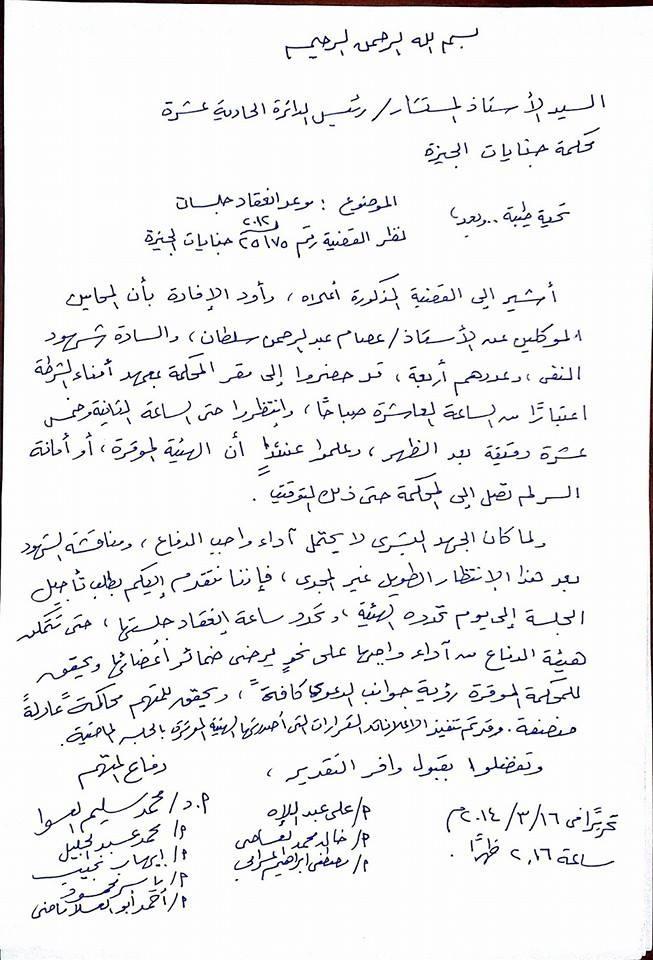 بسم الله الرحمن الرحيم
السيد الأستاذ المستشار/ رئيس الدائرة الحادية عشرة
محكمة جنايات الجيزة
تحية طيبة .. وبعد،
الموضوع : موعد انعقاد جلسات
لنظر القضية رقم ٢٥١٧٥ / ٢٠١٢ جنايات الجيزة
أشير إلى القضية المذكورة أعلاه ، وأود الإفادة بأن المحامين
الموكلين عن الأستاذ/ عصام عبد الرحمن سلطان ، والسادة شهود
النفى ، وعددهم أربعة ، قد حضروا إلى مقر المحكمة بمعهد أمناء الشرطة
اعتبارًا من الساعة العاشرة صباحًا ، وانتظروا حتى الساعة الثانية وخمس
عشرة دقيقة بعد الظهر ، وعلموا عندئذٍ أن الهيئة الموقرة ، أو أمانة
السر لم تصل إلى المحكمة حتى ذلك التوقيت .
ولما كان الجهد البشرى لا يحتمل آداء واجب الدفاع ، ومناقشة الشهود
بعد هذا الإنتظار الطويل غير المجدى ، فإننا نتقدم إليكم بطلب تأجيل
الجلسة إلى يوم تحدده الهيئة ، وتحدد ساعة إنعقاد جلستها ، حتى تتمكن
هيئة الدفاع من آداء واجبها على نحو يرضى ضمائر أعضائها ويحقق
للمحكمة الموقرة رؤية جوانب الدعوى كافةً ، ويحقق للمتهم محاكمةً عادلةً
منصفة . وقد تم تنفيذ القرارات التى أصدرتها الهيئة الموقرة بالجلسة الماضية .
وتفضلوا بقبول وافر التقدير ،
دفاع المتهم
أ.د/ محمد سليم العوا
م/ محمد عبد الجليل
م/ إيهاب نجيب
م/ ياسر محمود
م/ أحمد أبو العلا ماضى
م/ على عبد اللاه
م/ خالد محمد
م/ مصطفى ابراهيم
تحريرًا فى ٢٠١٤/٣/١٦م
ساعة ٢،١٦ ظهرًا .